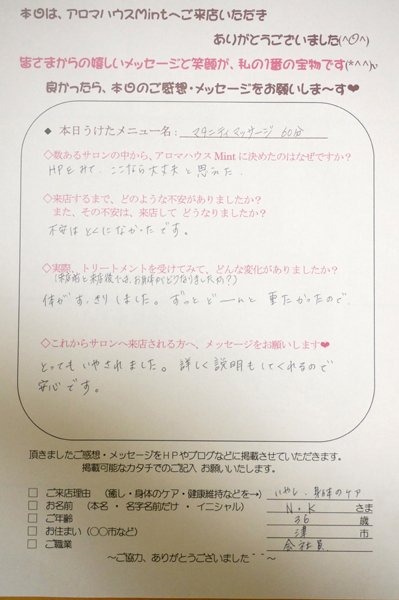 本日は、アロマハウスMintへご来店いただき
ありがとうございました(^O^)
皆さまからの嬉しいメッセージと笑顔が、私の1番の宝物です(*^^)v
良かったら、本日のご感想・メッセージをお願いしま～す❤
◆ 本日うけたメニュー名： マタニティマッサージ 60分
◇数あるサロンの中から、アロマハウス Mint に決めたのはなぜですか？
HPをみて、ここなら大丈夫と思った.
◇来店するまで、どのような不安がありましたか？
また、その不安は、来店して どうなりましたか？
不安はとくになかったです。
◇実際、トリートメントを受けてみて、どんな変化がありましたか？
(来店前と来店後では、お身体がどうなりましたか？)
体がすっきりしました。ずっとどーんと重たかったので.
◇これからサロンへ来店される方へ、メッセージをお願いします❤
とってもいやされました。詳しく説明もしてくれるので
安心です。
頂きましたご感想・メッセージをＨＰやブログなどに掲載させていただきます。
掲載可能なカタチでのご記入 お願いいたします。
□ ご来店理由 （癒し・身体のケア・健康維持などを→） いやし.身体のケア
□ お名前 （本名 ・ 名字名前だけ ・ イニシャル） N・K さま
□ ご年齢 36 歳
□ お住まい（〇〇市など） 津 市
□ ご職業 会社員
～ご協力、ありがとうございました＾＾～